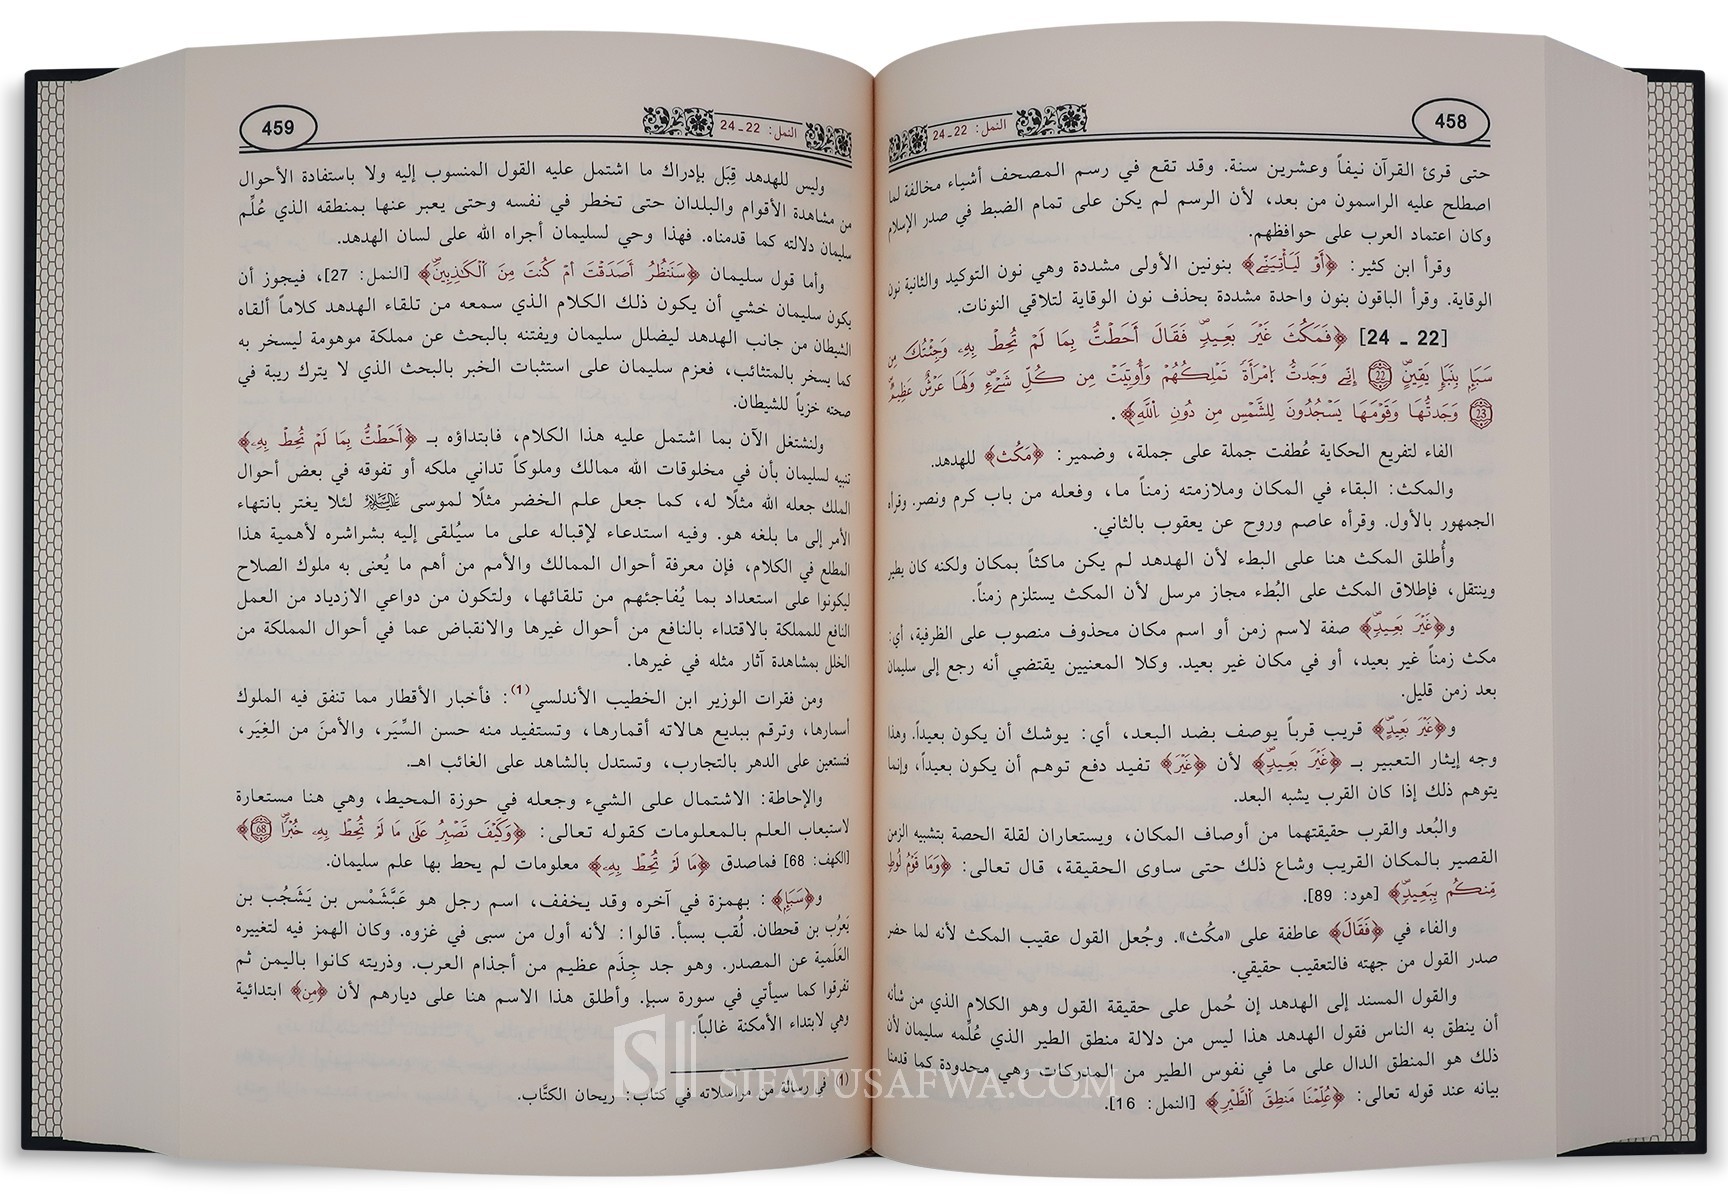 458
النمل: 22 ـ 24
حتى قرئ القرآن نيفاً وعشرين سنة. وقد تقع في رسم المصحف أشياء مخالفة لما
اصطلح عليه الراسمون من بعد، لأن الرسم لم يكن على تمام الضبط في صدر الإسلام
وكان اعتماد العرب على حوافظهم.
وقرأ ابن كثير: ﴿أَوْ لَيَأْتِيَنَّنِي﴾ بنونين الأولى مشددة وهي نون التوكيد والثانية نون
الوقاية. وقرأ الباقون بنون واحدة مشددة بحذف نون الوقاية لتلاقي النونات.
[22 ـ 24] ﴿فَمَكُثَ غَيْرَ بَعِيدٍ فَقَالَ أَحَطتُّ بِمَا لَمْ تُحِطْ بِهِ وَجِئْتُكَ مِن
سَبَإٍ بِنَبَإٍ يَقِينٍ 22 إِنِّي وَجَدتُّ امْرَأَةً تَمْلِكُهُمْ وَأُوتِيَتْ مِن كُلِّ شَيْءٍ وَلَهَا عَرْشٌ عَظِيمٌ
23 وَجَدتُّهَا وَقَوْمَهَا يَسْجُدُونَ لِلشَّمْسِ مِن دُونِ اللَّهِ﴾.
الفاء لتفريع الحكاية عُطفت جملة على جملة، وضمير: ﴿مَكُث﴾ للهدهد.
والمكث: البقاء في المكان وملازمته زمناً ما، وفعله من باب كرم ونصر. وقرأه
الجمهور بالأول. وقرأه عاصم وروح عن يعقوب بالثاني.
وأُطلق المكث هنا على البطء لأن الهدهد لم يكن ماكثاً بمكان ولكنه كان يطير
وينتقل، فإطلاق المكث على البُطء مجاز مرسل لأن المكث يستلزم زمناً.
و﴿غَيْرَ بَعِيدٍ﴾ صفة لاسم زمن أو اسم مكان محذوف منصوب على الظرفية، أي:
مكث زمناً غير بعيد، أو في مكان غير بعيد. وكلا المعنيين يقتضي أنه رجع إلى سليمان
بعد زمن قليل.
و﴿غَيْرَ بَعِيدٍ﴾ قريب قرباً يوصف بضد البعد، أي: يوشك أن يكون بعيداً. وهذا
وجه إيثار التعبير بـ ﴿غَيْرَ بَعِيدٍ﴾ لأن ﴿غَيْرَ﴾ تفيد دفع توهم أن يكون بعيداً، وإنما
يتوهم ذلك إذا كان القرب يشبه البعد.
والبُعد والقرب حقيقتهما من أوصاف المكان، ويستعاران لقلة الحصة بتشبيه الزمن
القصير بالمكان القريب وشاع ذلك حتى ساوى الحقيقة، قال تعالى: ﴿وَمَا قَوْمُ لُوطٍ
مِّنكُم بِبَعِيدٍ﴾ [هود: 89].
والفاء في ﴿فَقَالَ﴾ عاطفة على «مكث». وجُعل القول عقيب المكث لأنه لما حضر
صدر القول من جهته فالتعقيب حقيقي.
والقول المسند إلى الهدهد إن حُمل على حقيقة القول وهو الكلام الذي من شأنه
أن ينطق به الناس فقول الهدهد هذا ليس من دلالة منطق الطير الذي عُلِّمه سليمان لأن
ذلك هو المنطق الدال على ما في نفوس الطير من المدركات وهي محدودة كما قدمنا
بيانه عند قوله تعالى: ﴿عُلِّمْنَا مَنطِقَ الطَّيْرِ﴾ [النمل: 16].
459
النمل: 22 ـ 24
وليس للهدهد قِبَل بإدراك ما اشتمل عليه القول المنسوب إليه ولا باستفادة الأحوال
من مشاهدة الأقوام والبلدان حتى تخطر في نفسه وحتى يعبر عنها بمنطقه الذي عُلِّم
سليمان دلالته كما قدمناه. فهذا وحي لسليمان أجراه الله على لسان الهدهد.
وأما قول سليمان ﴿سَنَنظُرُ أَصَدَقْتَ أَمْ كُنتَ مِنَ الْكَاذِبِينَ﴾ [النمل: 27]، فيجوز أن
يكون سليمان خشي أن يكون ذلك الكلام الذي سمعه من تلقاء الهدهد كلاماً ألقاه
الشيطان من جانب الهدهد ليضلل سليمان ويفتنه بالبحث عن مملكة موهومة ليسخر به
كما يسخر بالمتثائب، فعزم سليمان على استثبات الخبر بالبحث الذي لا يترك ريبة في
صحته خزياً للشيطان.
ولنشتغل الآن بما اشتمل عليه هذا الكلام، فابتداؤه بـ ﴿أَحَطتُّ بِمَا لَمْ تُحِطْ بِهِ﴾
تنبيه لسليمان بأن في مخلوقات الله ممالك وملوكاً تداني ملكه أو تفوقه في بعض أحوال
الملك جعله الله مثلًا له، كما جعل علم الخضر مثلًا لموسى عليه السلام لئلا يغتر بانتهاء
الأمر إلى ما بلغه هو. وفيه استدعاء لإقباله على ما سيُلقى إليه بشراشره لأهمية هذا
المطلع في الكلام، فإن معرفة أحوال الممالك والأمم من أهم ما يُعنى به ملوك الصلاح
ليكونوا على استعداد بما يُفاجئهم من تلقائها، ولتكون من دواعي الازدياد من العمل
النافع للمملكة بالاقتداء بالنافع من أحوال غيرها والانقباض عما في أحوال المملكة من
الخلل بمشاهدة آثار مثله في غيرها.
ومن فقرات الوزير ابن الخطيب الأندلسي(1): فأخبار الأقطار مما تنفق فيه الملوك
أسمارها، وترقم ببديع هالاته أقمارها، وتستفيد منه حسن السِّيَر، والأمنَ من الغِيَر،
فتستعين على الدهر بالتجارب، وتستدل بالشاهد على الغائب اهـ.
والإحاطة: الاشتمال على الشيء وجعله في حوزة المحيط، وهي هنا مستعارة
لاستيعاب العلم بالمعلومات كقوله تعالى: ﴿وَكَيْفَ تَصْبِرُ عَلَىٰ مَا لَمْ تُحِطْ بِهِ خُبْرًا 68﴾
[الكهف: 68] فماصدق ﴿مَا لَمْ تُحِطْ بِهِ﴾ معلومات لم يحط بها علم سليمان.
و﴿سَبَإٍ﴾: بهمزة في آخره وقد يخفف، اسم رجل هو عَبَّشَمْس بن يَشَجُب بن
يَعرُب بن قحطان. لُقب بسبأ. قالوا: لأنه أول من سبى في غزوه. وكان الهمز فيه لتغييره
العَلَمية عن المصدر. وهو جد جِذَم عظيم من أجذام العرب. وذريته كانوا باليمن ثم
تفرقوا كما سيأتي في سورة سبإ. وأطلق هذا الاسم هنا على ديارهم لأن ﴿مِن﴾ ابتدائية
وهي لابتداء الأمكنة غالباً.
(1) في رسالة من مراسلاته في كتاب: ريحان الكتَّاب.
SIFATUSAFWA.COM